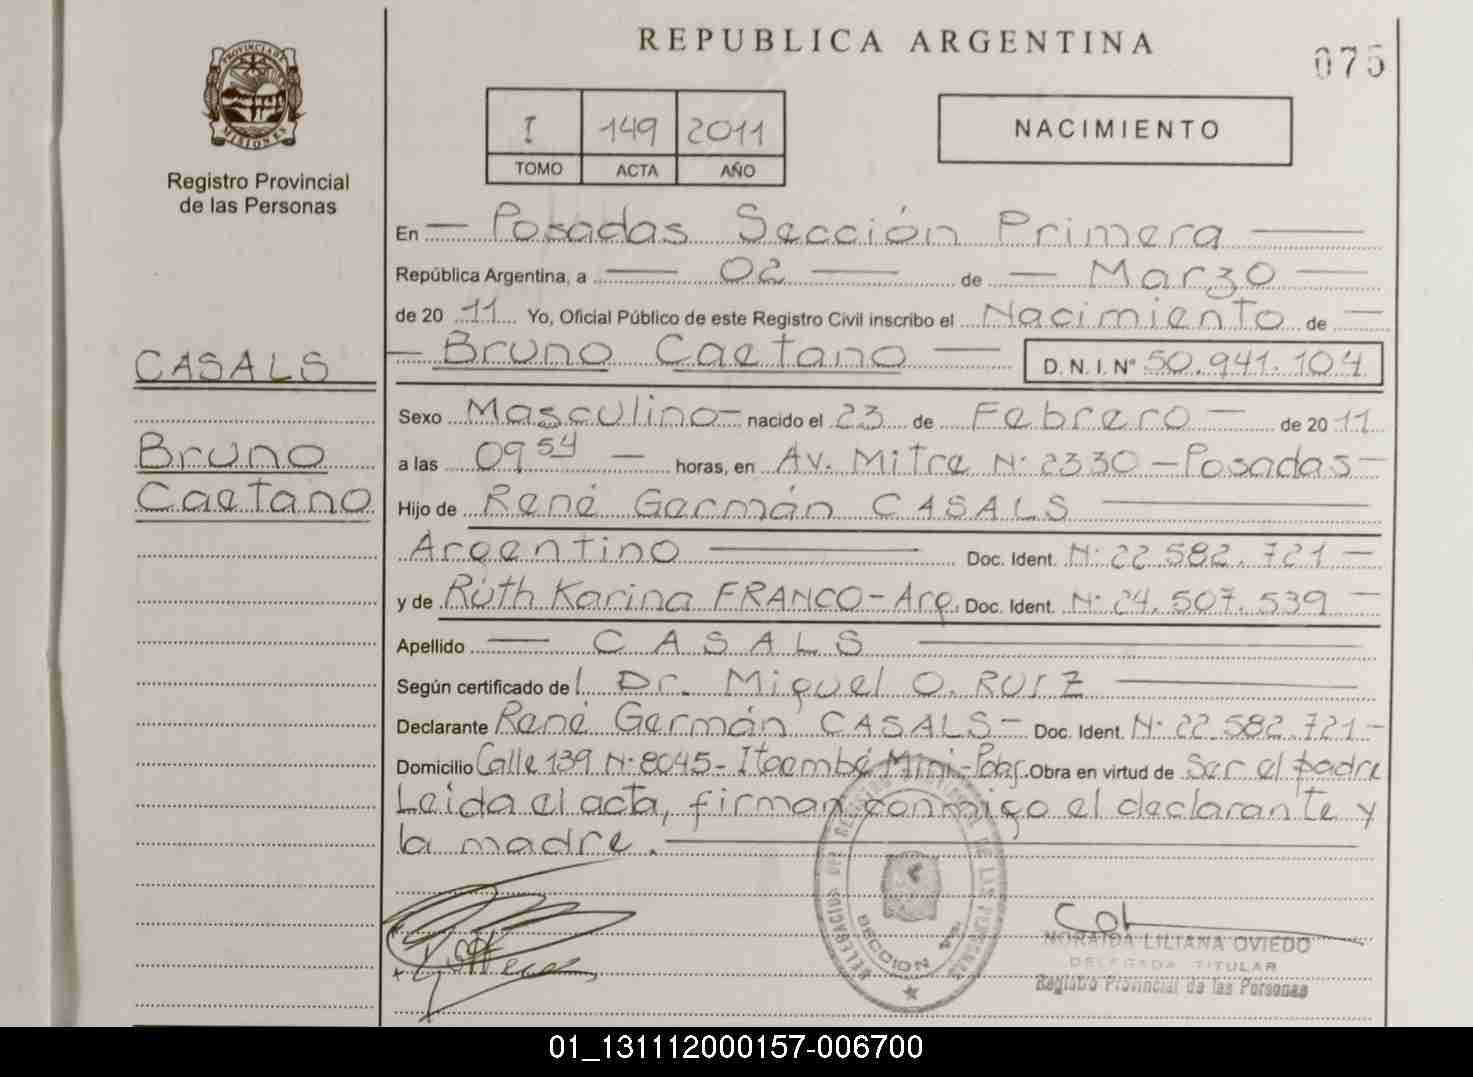 REPUBLICA ARGENTINA
075
PROVINCIA DE MISIONES
Registro Provincial
de las Personas
I 149 2011
TOMO ACTA AÑO
NACIMIENTO
En — Posadas Sección Primera —
República Argentina, a — 02 — de — Marzo —
de 20 11 Yo, Oficial Público de este Registro Civil inscribo el Nacimiento de —
— Bruno Caetano — D.N.I. Nº 50.941.104
CASALS
Bruno
Caetano
Sexo Masculino — nacido el 23 de Febrero — de 20 11
a las 09 54 — horas, en Av. Mitre Nº 2330 — Posadas —
Hijo de René Germán CASALS —
Argentino — Doc. Ident. Nº 22.582.721 —
y de Ruth Karina FRANCO - Arg. Doc. Ident. Nº 24.507.539 —
Apellido — CASALS —
Según certificado del Dr. Miguel O. RUIZ —
Declarante René Germán CASALS — Doc. Ident. Nº 22.582.721 —
Domicilio Calle 139 Nº 8045 - Itaembé Mini - Pdas. Obra en virtud de Ser el padre
Leida el acta, firman conmigo el declarante y
la madre. —
DELEGACION DEL REGISTRO PROVINCIAL DE LAS PERSONAS
SECCION 1ra.
NORAIDA LILIANA OVIEDO
DELEGADA TITULAR
Registro Provincial de las Personas
01_131112000157-006700